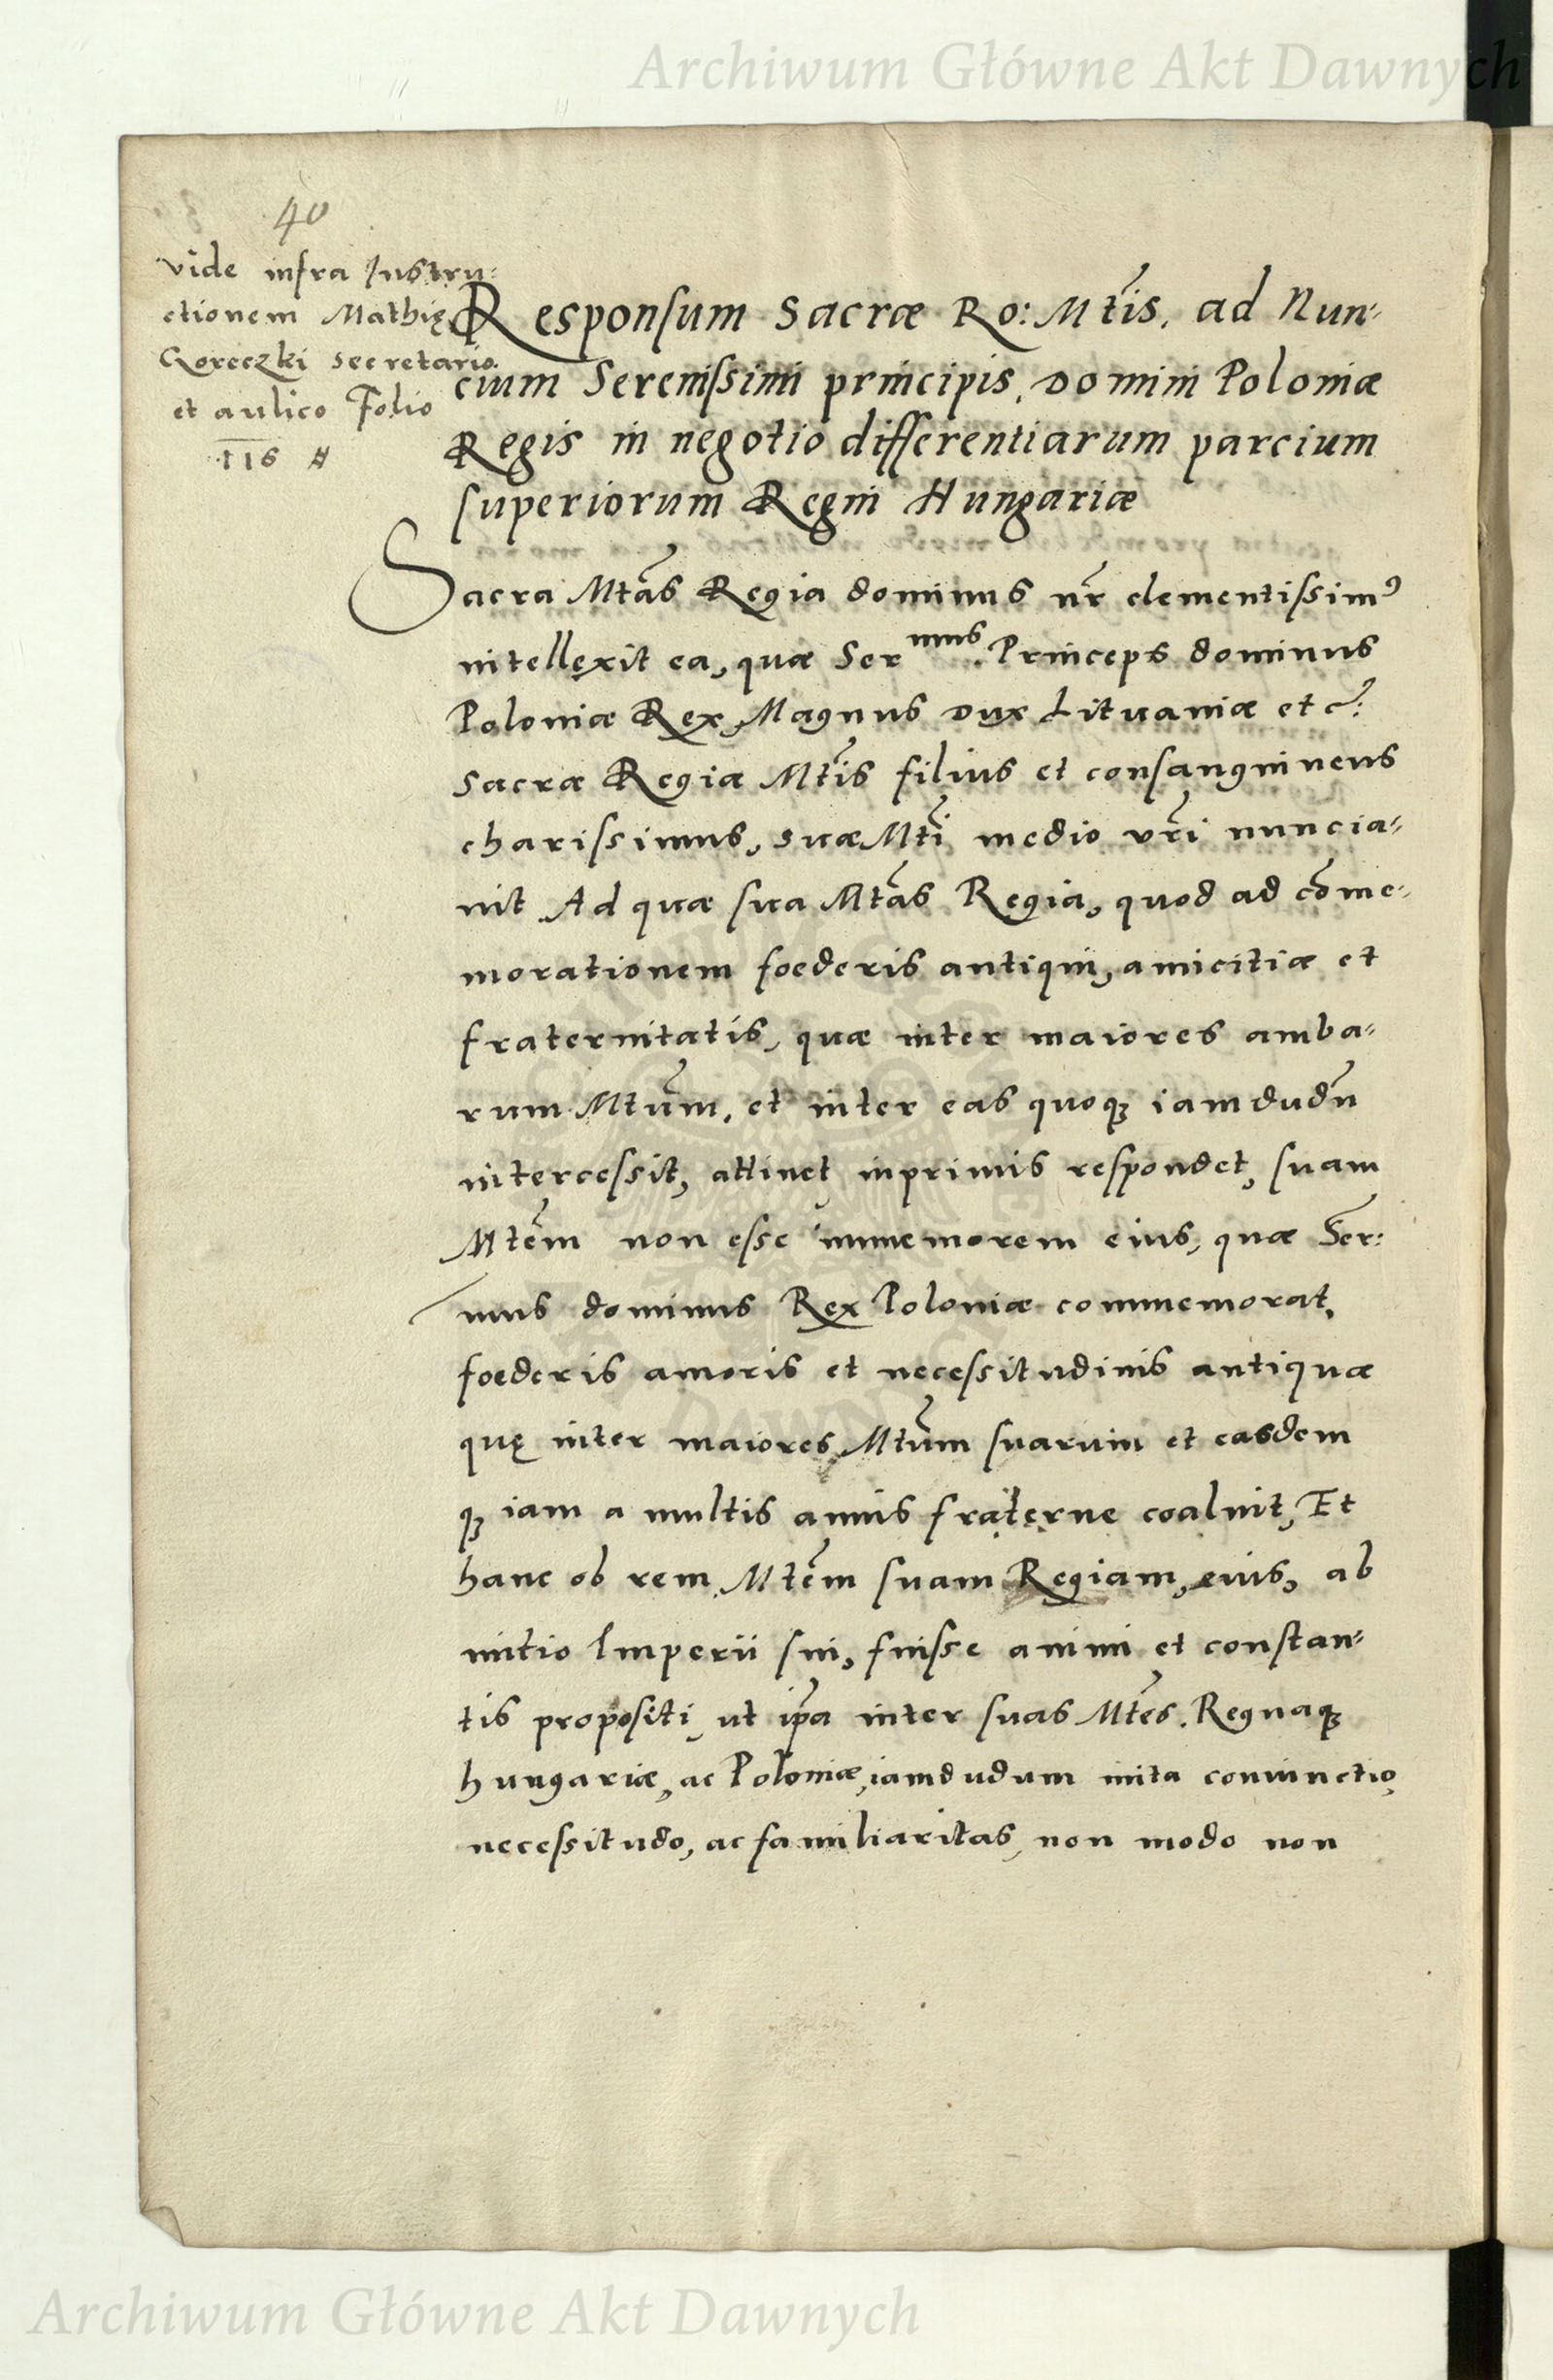 Archiwum Główne Akt Dawnych
40
vide infra Instru:
ctionem Mathię
Goreczki secretario
et aulico Folio
116 #
Responsum Sacræ Ro: Mtis. ad Nun-
cium Serenissimi principis, Domini Poloniæ
Regis in negotio differentiarum parcium
superiorum Regni Hungariæ
Sacra Mtas Regia dominus nr clementissim9
intellexit ea, quæ Ser mus. Princeps dominus
Poloniæ Rex, Magnus Dux Lituaniæ etc:
Sacræ Regiæ Mtis filius et consanguineus
charissimus, suæ Mti medio vri nuncia-
uit Ad quæ sua Mtas Regia, quod ad come-
morationem foederis antiqui, amicitiæ et
fraternitatis, quæ inter maiores amba-
rum Mtum, et inter eas quoq3 iamdudu
intercessit, attinet inprimis respondet, suam
Mtem non esse immemorem eius, quæ Ser:
mus dominus Rex Poloniæ commemorat,
foederis amoris et necessitudinis antiquæ
quę inter maiores Mtum suarum et easdem
q3 iam a multis annis fraterne coaluit, Et
hanc ob rem Mtem suam Regiam, eius, ab
initio Imperii sui, fuisse animi et constan-
tis propositi, ut ipa inter suas Mtes. Regnaq3
hungariæ, ac Poloniæ, iamdudum inita coniunctio,
necessitudo, ac familiaritas, non modo non
Archiwum Główne Akt Dawnych